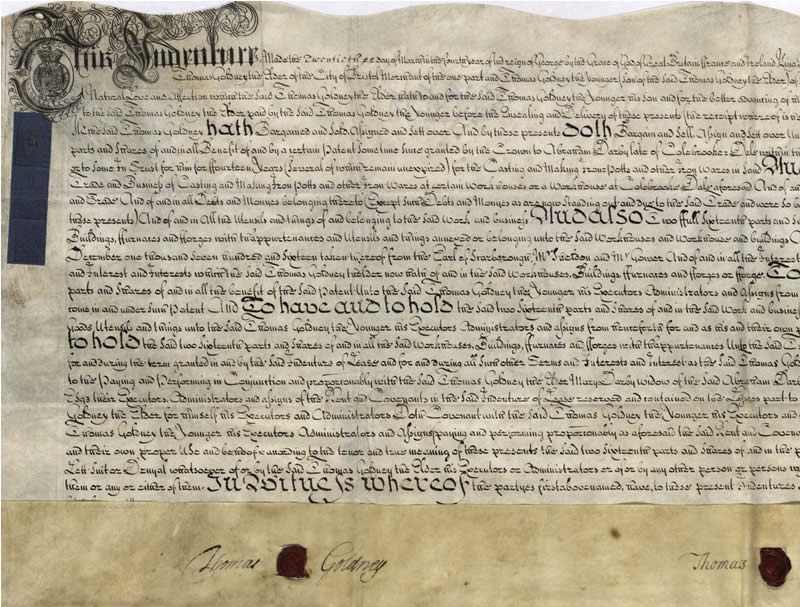 This Indenture Made the Twentieth day of March in the fourth year of the reign of George by the Grace of God of Great Britain France and Ireland King
Thomas Goldney the Elder of the City of Bristol Merchant of the one part and Thomas Goldney the Younger Son of the said Thomas Goldney the Elder of
Natural Love and Affection which the said Thomas Goldney the Elder hath to and for the said Thomas Goldney the Younger his Son and for the better advancing of
to the said Thomas Goldney the Elder paid by the said Thomas Goldney the Younger before the Ensealing and Delivery of these presents the receipt whereof is
the said Thomas Goldney hath Bargained and Sold Assigned and Sett over And by these presents Doth Bargain and Sell Assign and Sett over
parts and Shares of and in all Benefit of and by a certain Patent Sometime since granted by the Crown to Abraham Darby late of Colebrooke Dale within
or to Some in Trust for him for ffourteen Years (Several of which remain unexpired) for the Casting and Making Iron Potts and other Iron Wares in Said
Trade and Business of Casting and Making Iron Potts and other Iron Wares at certain Workhouses or a Workhouse at Colebrooke Dale aforesaid And of
and Trade And of and in all Debts and Moneys belonging thereto (Except Such Debts and Moneys as are now Standing out and due to the said Trade and were So
these presents) And of and in All the Utensils and things of and belonging to the said Work and business And also Two ffull Sixteenth parts and
Buildings, ffurnaces and fforges with th'appurtenances and Utensils and things annexed or belonging unto the said Workhouses and Workhouse and buildings
December one thousand Seven hundred and Sixteen taken thereof from the Earl of Scarborough, Mr Jackson and Mr Gower And of and in all the Interest
and Interest and Interests which the said Thomas Goldney the Elder now hath of and in the said Workhouses, Buildings ffurnaces and fforges or fforge. To
parts and Shares of and in all the benefit of the said Patent Unto the said Thomas Goldney the Younger his Executors Administrators and Assigns from
come in and under Such Patent And To have and to hold the said two Sixteenth parts and Shares of and in the said Work and
goods Utensils and things unto the said Thomas Goldney the Younger his Executors Administrators and assigns from henceforth for and as his and their own
to hold the said two Sixteenth parts and Shares of and in all the said Workhouses, Buildings, ffurnaces and fforges with th'appurtenances Unto the said
for and during the term granted in and by the said Indenture of Lease and for and during all Such other Terms and Interests and Interest as the said Thomas
to the Paying and Performing in Conjunction and proportionably with the said Thomas Goldney the Elder Mary Darby Widow of the said Abraham
their Executors, Administrators and assigns of the Rent and Covenants in the said Indenture of Lease reserved and contained on the Lessees part to
Goldney the Elder for himself his Executors and Administrators Doth Covenant with the said Thomas Goldney the Younger his Executors and
Thomas Goldney the Younger his Executors Administrators and Assigns paying and performing proportionably as aforesaid the said Rent and
and their own proper Use and behoof according to the tenor and true meaning of these presents the said two Sixteenth parts and Shares of and in the
Lett Suit or Denyal whatsoever of or by the said Thomas Goldney the Elder his Executors or Administrators or of or by any other person or persons
them or any or either of them. In Witness whereof the partyes first above named, have, to these present Indentures
Thomas Goldney Thomas